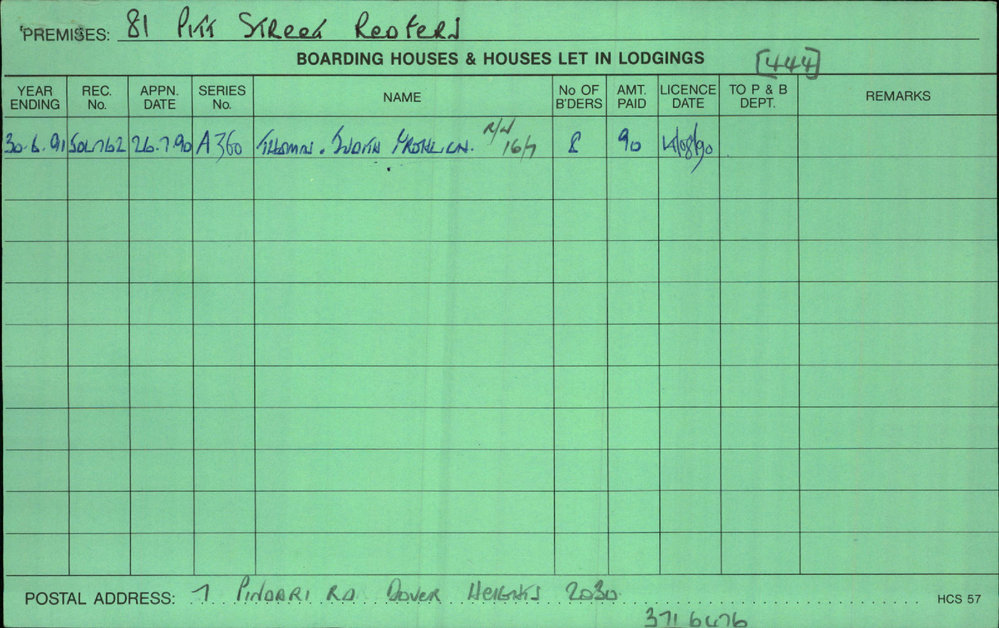 PREMISES: 81 Pitt Street Redfern
BOARDING HOUSES & HOUSES LET IN LODGINGS [444]
YEAR ENDING REC. No. APPN. DATE SERIES No. NAME No OF B'DERS AMT. PAID LICENCE DATE TO P & B DEPT. REMARKS
30.6.91 26.7.90 A360 16/7 8 90
POSTAL ADDRESS: 7 PINDARI RD DOVER HEIGHTS 2030 HCS 57
371 6476